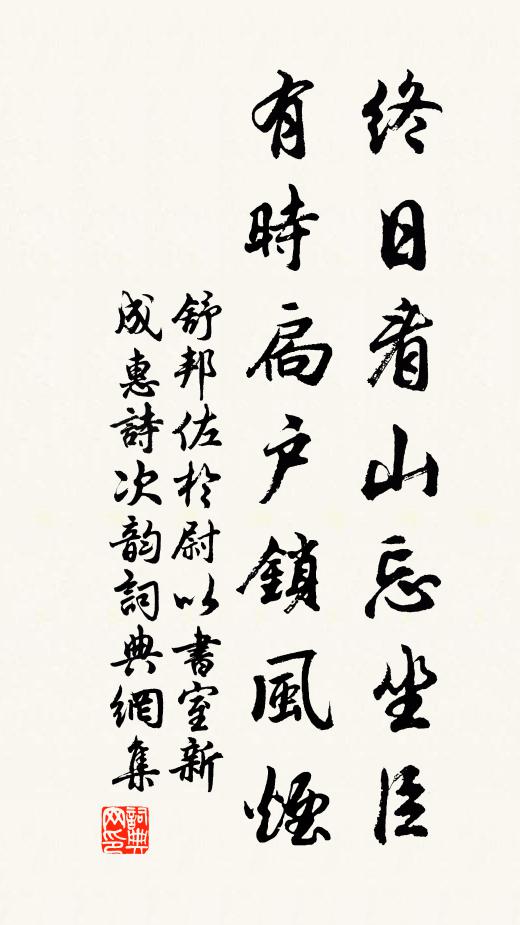 終日看山忘坐臣
有時扃户鎖風煙
舒邦佐於尉以書室新
成惠詩次韵詞典網集
詞典網印